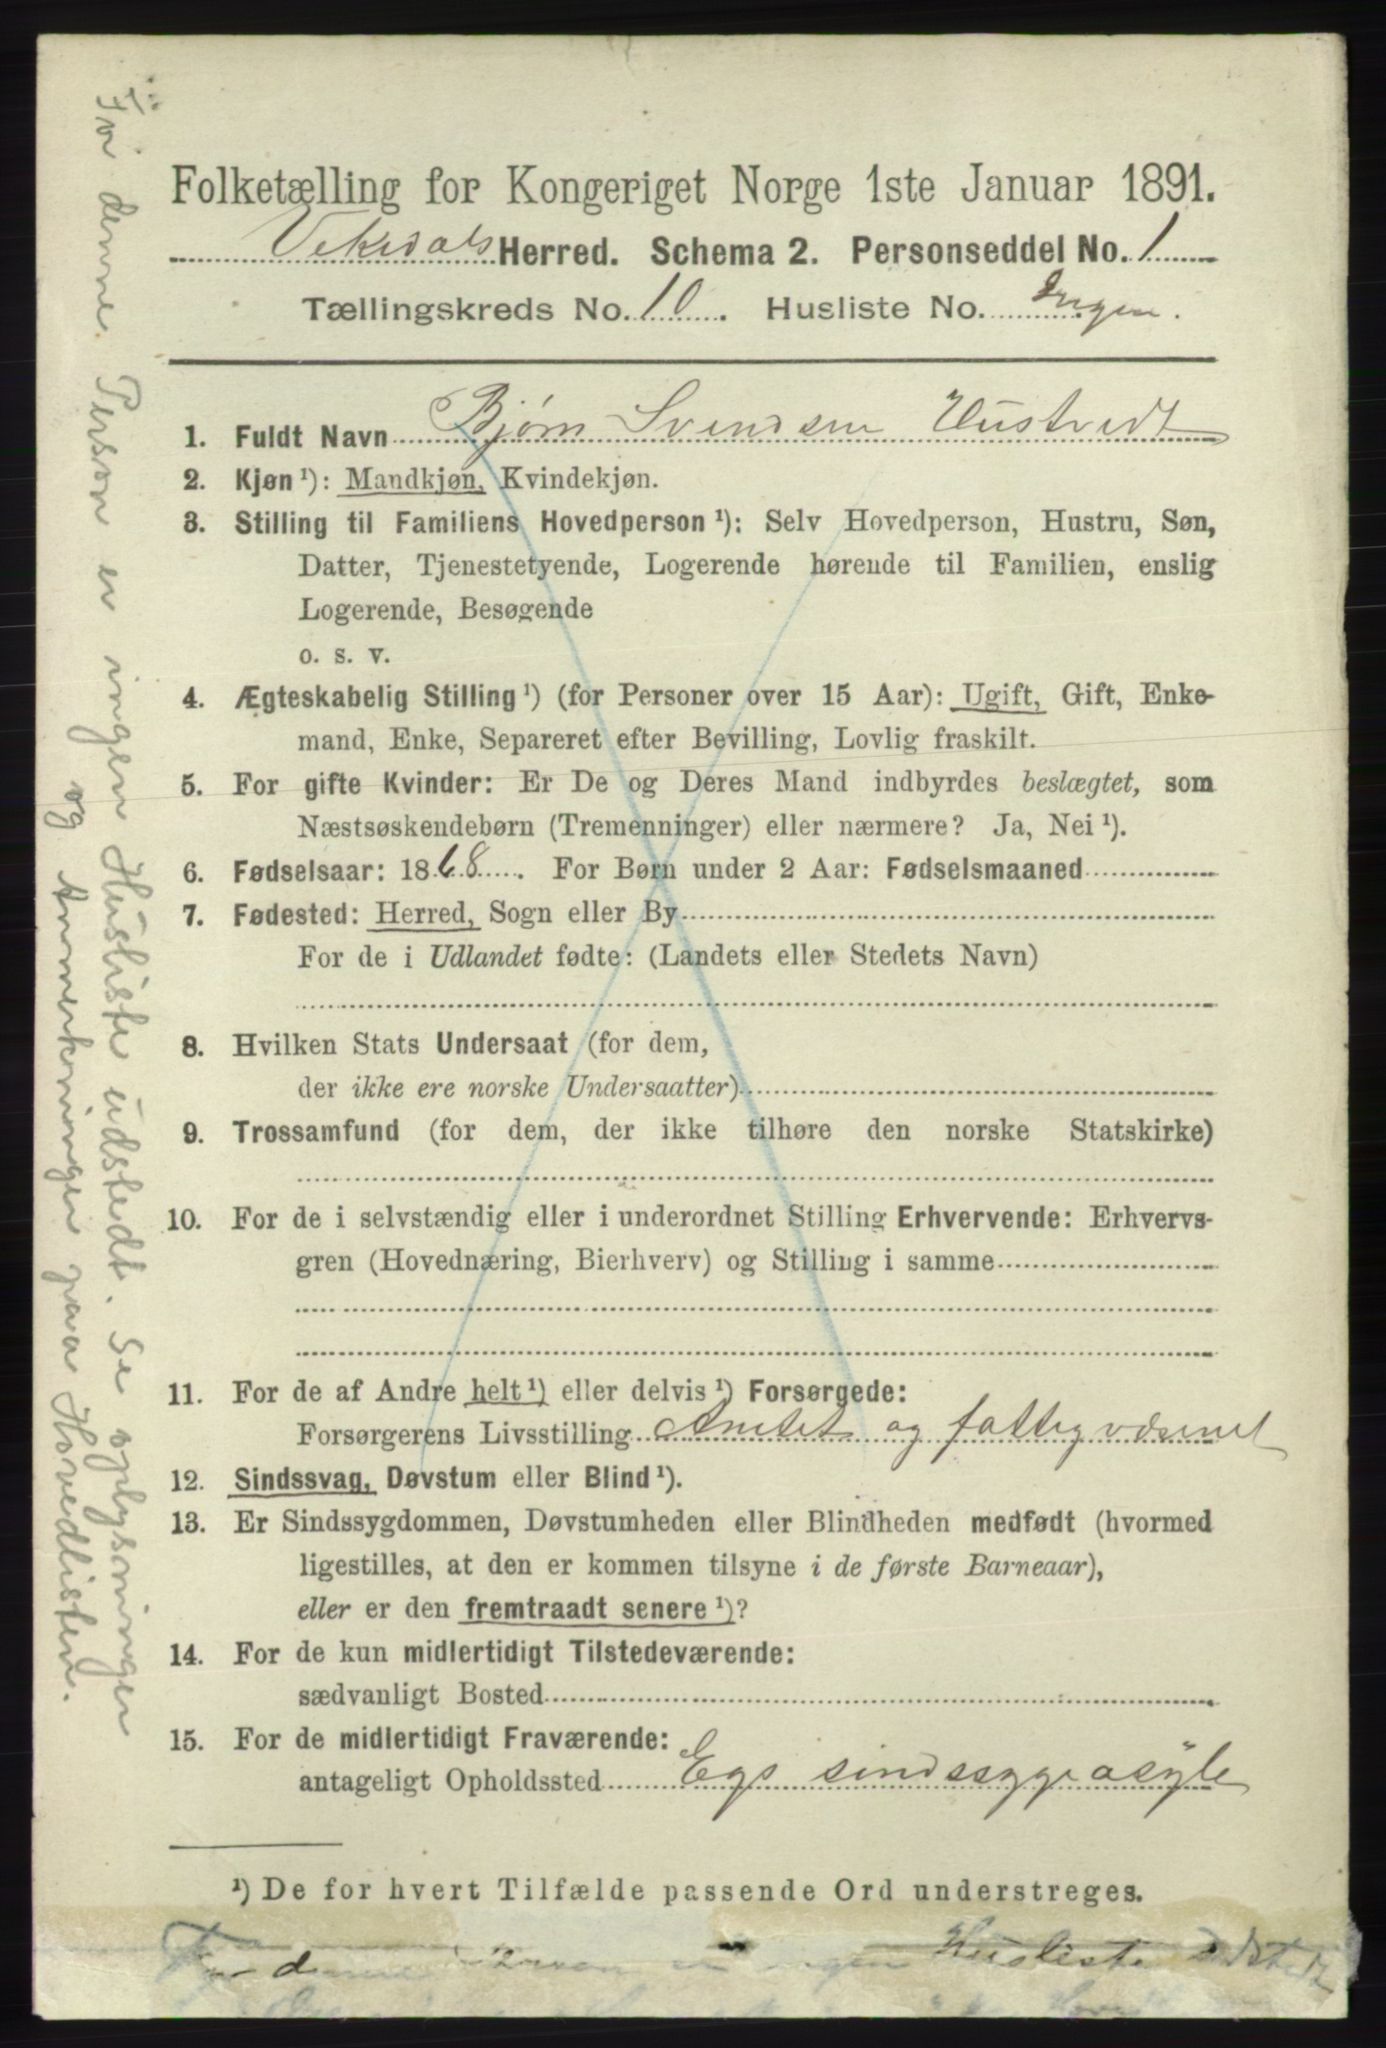 Folketælling for Kongeriget Norge 1ste Januar 1891.
Vikedals Herred. Schema 2. Personseddel No. 1
Tællingskreds No. 10. Husliste No. Ingen.
1. Fuldt Navn Bjørn Svendsen Hustvedt
2. Kjøn¹): Mandkjøn, Kvindekjøn.
3. Stilling til Familiens Hovedperson¹): Selv Hovedperson, Hustru, Søn,
Datter, Tjenestetyende, Logerende hørende til Familien, enslig
Logerende, Besøgende
o. s. v.
4. Ægteskabelig Stilling¹) (for Personer over 15 Aar): Ugift, Gift, Enke-
mand, Enke, Separeret efter Bevilling, Lovlig fraskilt.
5. For gifte Kvinder: Er De og Deres Mand indbyrdes beslægtet, som
Næstsøskendebørn (Tremenninger) eller nærmere? Ja, Nei¹).
6. Fødselsaar: 1868. For Børn under 2 Aar: Fødselsmaaned
7. Fødested: Herred, Sogn eller By
For de i Udlandet fødte: (Landets eller Stedets Navn)
8. Hvilken Stats Undersaat (for dem,
der ikke ere norske Undersaatter)
9. Trossamfund (for dem, der ikke tilhøre den norske Statskirke)
10. For de i selvstændig eller i underordnet Stilling Erhvervende: Erhvervs-
gren (Hovednæring, Bierhverv) og Stilling i samme
11. For de af Andre helt¹) eller delvis¹) Forsørgede:
Forsørgerens Livsstilling Amtet og fattigvæsenet
12. Sindssvag, Døvstum eller Blind¹).
13. Er Sindssygdommen, Døvstumheden eller Blindheden medfødt (hvormed
ligestilles, at den er kommen tilsyne i de første Barneaar),
eller er den fremtraadt senere¹)?
14. For de kun midlertidigt Tilstedeværende:
sædvanligt Bosted
15. For de midlertidigt Fraværende:
antageligt Opholdssted Egs sindssygeasyle
¹) De for hvert Tilfælde passende Ord understreges.
For denne Person er ingen Husliste udstedt
For denne Person er ingen Husliste udstedt. Se oplysningen
og Anmerkningen paa Hovedlisten.